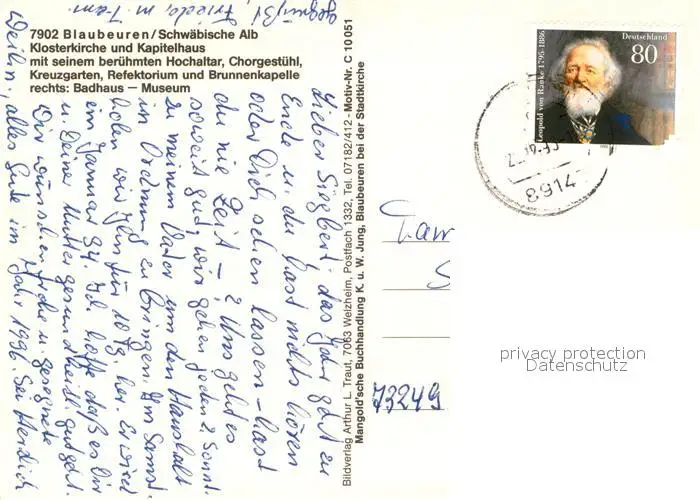 7902 Blaubeuren/Schwäbische Alb
Klosterkirche und Kapitelhaus
mit seinem berühmten Hochaltar, Chorgestühl,
Kreuzgarten, Refektorium und Brunnenkapelle
rechts: Badhaus — Museum
Lieber Siegbert, das Jahr geht zu
Ende u. du hast nichts hören
oder Dich sehen lassen – hast
du nie Zeit – ? Uns geht es
soweit gut, wir gehen jeden 2. Sonnt.
zu meinem Vater um den Haushalt
in Ordnung zu bringen. Am Samst.
holen wir ihn für 10 Tg. her. Er wird
im Januar 94. Ich hoffe daß es Dir
u. Deiner Mutter gesundheitl. gut geht.
Wir wünschen frohe u. gesegnete
Weihn., alles Gute im Jahr 1996. Sei herzlich
gegrüßt, Frieda, m. Fam.
Bildverlag Arthur L. Traut, 7063 Welzheim, Postfach 1332, Tel. 07182/412 - Motiv-Nr. C 10051
Mangold'sche Buchhandlung K. u. W. Jung, Blaubeuren bei der Stadtkirche
Deutschland
80
Leopold von Ranke 1795-1886
8914
Fam
73249
privacy protection
Datenschutz